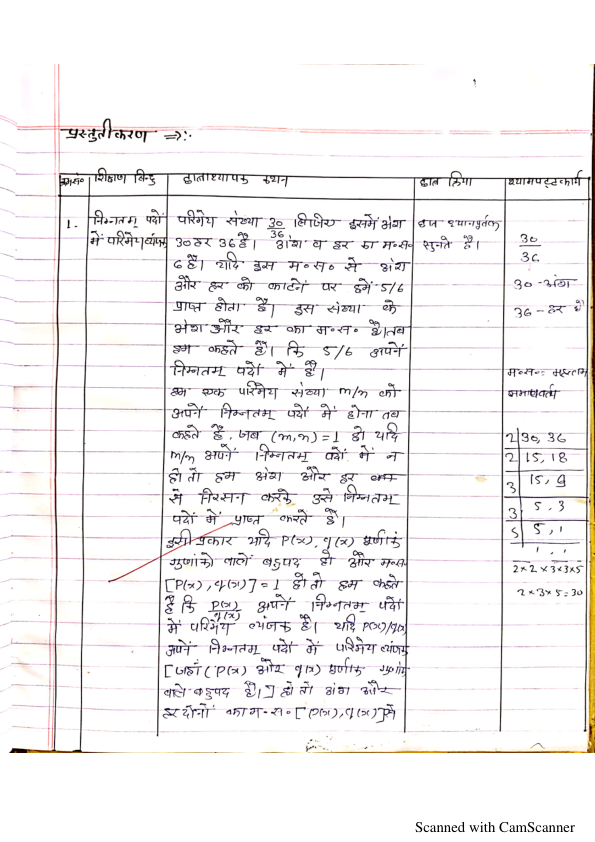 प्रस्तुतीकरण ⇒:-
क्र०सं० शिक्षण बिन्दु छात्राध्यापक कथन छात्र क्रिया श्यामपट्टकार्य
1. निम्नतम् पदों
में परिमेय व्यंजक
परिमेय संख्या 30/36 लीजिए इसमें अंश
30 हर 36 है। अंश व हर का म०स०
6 है। यदि इस म०स० से अंश
और हर को काटने पर हमें 5/6
प्राप्त होता है। इस संख्या के
अंश और हर का म०स० है। तब
हम कहते हैं। कि 5/6 अपने
निम्नतम् पदों में है।
हम एक परिमेय संख्या m/n को
अपने निम्नतम् पदों में होना तब
कहते हैं, जब (m,n) = 1 हो यदि
m/n अपने निम्नतम् पदों में न
हो तो हम अंश और हर
से निरसन करके उसे निम्नतम्
पदों में प्राप्त करते हैं।
इसी प्रकार यदि P(x), q(x) पूर्णांक
गुणांको वाले बहुपद हो और म०स०
[P(x), q(x)] = 1 हो तो हम कहते
है कि P(x)/q(x) अपने निम्नतम् पदों
में परिमेय व्यंजक है। यदि P(x)/q(x)
अपने निम्नतम् पदों में परिमेय व्यंजक
[जहाँ (P(x) और q(x) पूर्णांक गुणांक
वाले बहुपद है।] हो तो अंश और
हर दोनों का म०स० [P(x), q(x)] से
छात्र ध्यानपूर्वक
सुनते है।
30
36
30 - अंश
36 - हर है
म०स०: महत्तम
समापवर्तक
2 | 30, 36
2 | 15, 18
3 | 15, 9
3 | 5, 3
5 | 5, 1
1, 1
2×2×3×3×5
2×3×5=30
Scanned with CamScanner